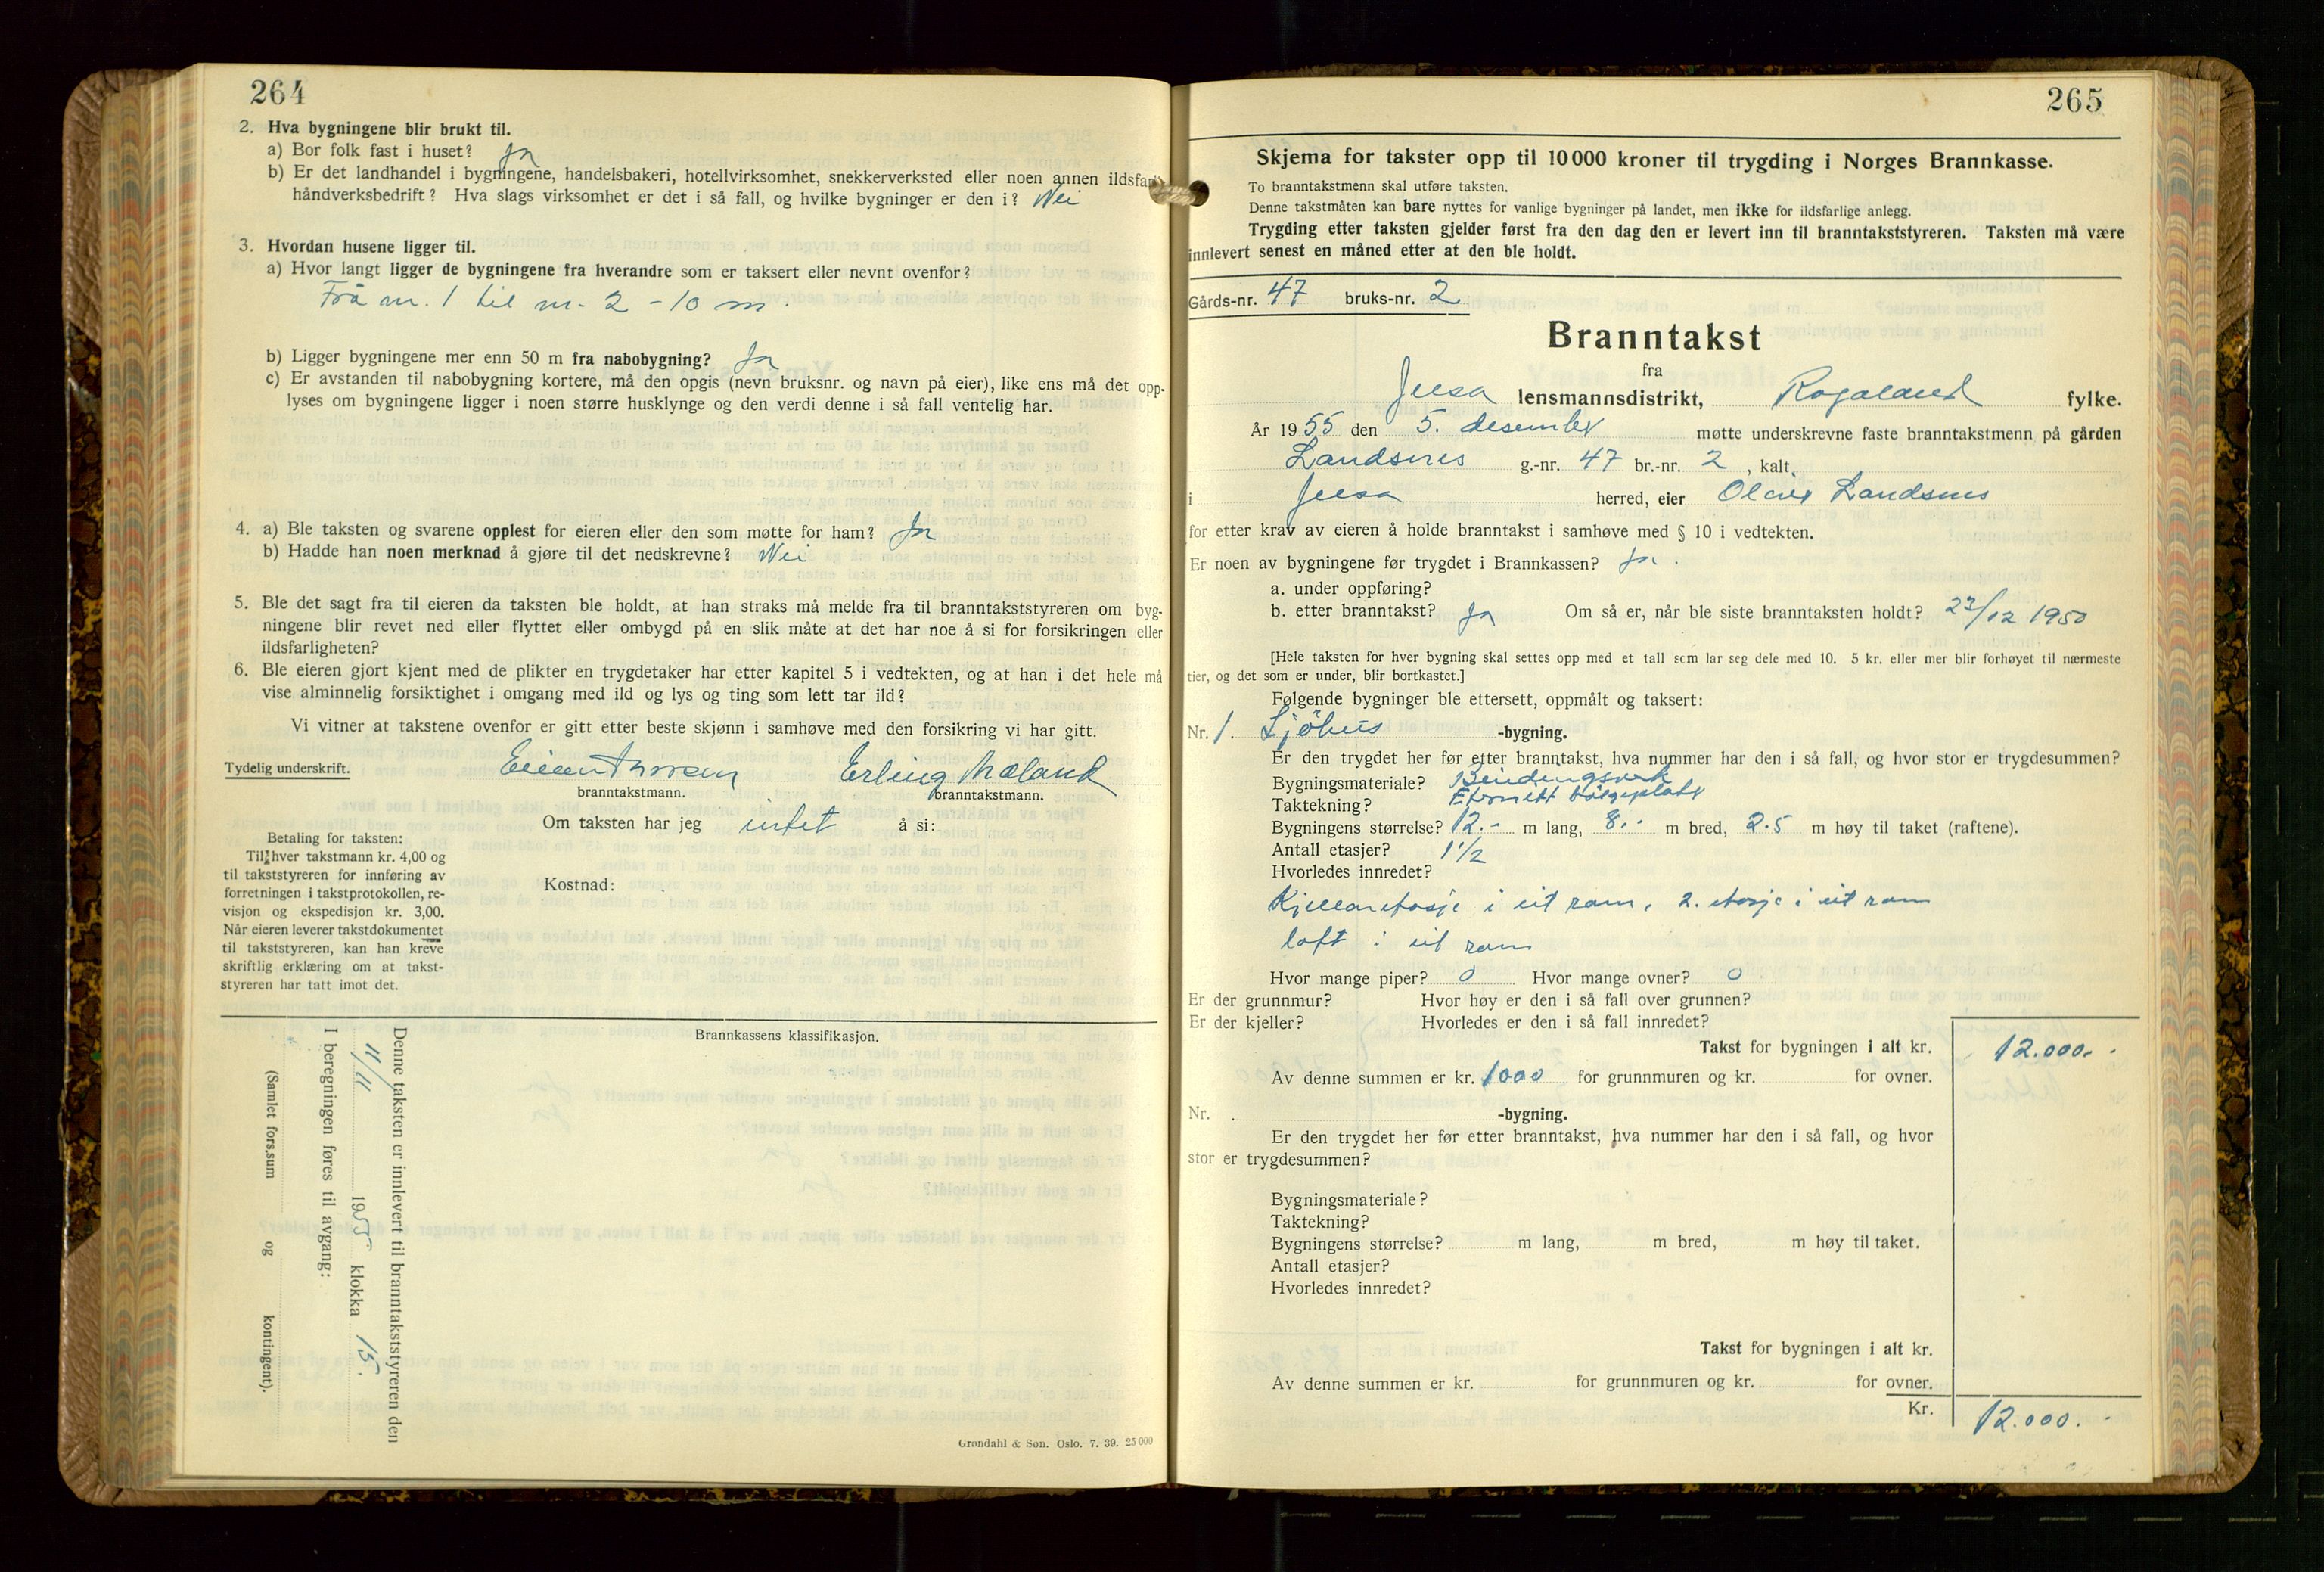 264
2. Hva bygningene blir brukt til.
a) Bor folk fast i huset? Ja
b) Er det landhandel i bygningene, handelsbakeri, hotellvirksomhet, snekkerverksted eller noen annen ildsfarlig
håndverksbedrift? Hva slags virksomhet er det i så fall, og hvilke bygninger er den i? Nei
3. Hvordan husene ligger til.
a) Hvor langt ligger de bygningene fra hverandre som er taksert eller nevnt ovenfor?
Frå nr. 1 til nr. 2 - 10 m.
b) Ligger bygningene mer enn 50 m fra nabobygning? Ja
c) Er avstanden til nabobygning kortere, må den opgis (nevn bruksnr. og navn på eier), like ens må det opp-
lyses om bygningene ligger i noen større husklynge og den verdi denne i så fall ventelig har.
4. a) Ble taksten og svarene opplest for eieren eller den som møtte for ham? Ja
b) Hadde han noen merknad å gjøre til det nedskrevne? Nei
5. Ble det sagt fra til eieren da taksten ble holdt, at han straks må melde fra til branntakststyreren om byg-
ningene blir revet ned eller flyttet eller ombygd på en slik måte at det har noe å si for forsikringen eller
ildsfarligheten?
6. Ble eieren gjort kjent med de plikter en trygdetaker har etter kapitel 5 i vedtekten, og at han i det hele må
vise alminnelig forsiktighet i omgang med ild og lys og ting som lett tar ild?
Vi vitner at takstene ovenfor er gitt etter beste skjønn i samhøve med den forsikring vi har gitt.
Tydelig underskrift. Erling Mæland
branntakstmann. branntakstmann.
Om taksten har jeg intet å si:
Betaling for taksten:
Til hver takstmann kr. 4,00 og
til takststyreren for innføring av
forretningen i takstprotokollen, re-
visjon og ekspedisjon kr. 3,00.
Når eieren leverer takstdokumentet
til takststyreren, kan han kreve
skriftlig erklæring om at takst-
styreren har tatt imot det.
Kostnad:
Brannkassens klassifikasjon.
Denne taksten er innlevert til branntakststyreren den
11/11 1955 klokka 15.
I beregningen føres til avgang:
(Samlet fors.sum og kontingent).
Grøndahl & Søn. Oslo. 7. 39. 25 000
265
Skjema for takster opp til 10 000 kroner til trygding i Norges Brannkasse.
To branntakstmenn skal utføre taksten.
Denne takstmåten kan bare nyttes for vanlige bygninger på landet, men ikke for ildsfarlige anlegg.
Trygding etter taksten gjelder først fra den dag den er levert inn til branntakststyreren. Taksten må være
innlevert senest en måned etter at den ble holdt.
Gårds-nr. 47 bruks-nr. 2
Branntakst
fra
Jelsa lensmannsdistrikt, Rogaland fylke.
År 1955 den 5. desember møtte underskrevne faste branntakstmenn på gården
Landsnes g.-nr. 47 br.-nr. 2, kalt
i Jelsa herred, eier Landsnes
for etter krav av eieren å holde branntakst i samhøve med § 10 i vedtekten.
Er noen av bygningene før trygdet i Brannkassen? Ja.
a. under oppføring?
b. etter branntakst? Ja Om så er, når ble siste branntaksten holdt? 22/12 1950
[Hele taksten for hver bygning skal settes opp med et tall som lar seg dele med 10. 5 kr. eller mer blir forhøyet til nærmeste
tier, og det som er under, blir bortkastet.]
Følgende bygninger ble ettersett, oppmålt og taksert:
Nr. 1. Sjöhus -bygning.
Er den trygdet her før etter branntakst, hva nummer har den i så fall, og hvor stor er trygdesummen?
Bygningsmateriale? Bindingsverk
Taktekning? Eternitt bölgeplater
Bygningens størrelse? 12.- m lang, 8.- m bred, 2.5 m høy til taket (raftene).
Antall etasjer? 1 1/2
Hvorledes innredet?
Kjellaretasje i eit rom, 2. etasje i eit rom
loft i eit rom
Hvor mange piper? 0 Hvor mange ovner? 0
Er der grunnmur? Hvor høy er den i så fall over grunnen?
Er der kjeller? Hvorledes er den i så fall innredet?
Takst for bygningen i alt kr. 12.000.-
Av denne summen er kr. 1000 for grunnmuren og kr. for ovner.
Nr. . -bygning.
Er den trygdet her før etter branntakst, hva nummer har den i så fall, og hvor
stor er trygdesummen?
Bygningsmateriale?
Taktekning?
Bygningens størrelse? m lang, m bred, m høy til taket.
Antall etasjer?
Hvorledes innredet?
Takst for bygningen i alt kr.
Av denne summen er kr. for grunnmuren og kr. for ovner.
Kr. 12.000.-